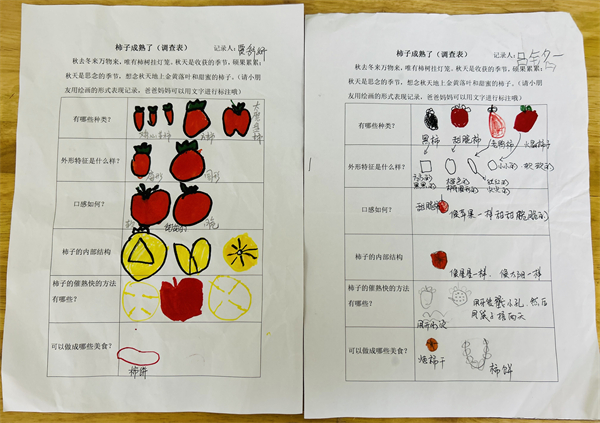 柿子成熟了（调查表）
记录人：
秋去冬来万物末，唯有柿树挂灯笼。秋天是收获的季节，硕果累累；
秋天是思念的季节，想念秋天地上金黄落叶和甜蜜的柿子。（请小朋
友用绘画的形式表现记录，爸爸妈妈可以用文字进行标注哦）
有哪些种类？
外形特征是什么样？
圆形
口感如何？
脆
柿子的内部结构
柿子的催熟快的方法
有哪些？
可以做成哪些美食？
柿饼
柿子成熟了（调查表）
记录人：
秋去冬来万物末，唯有柿树挂灯笼。秋天是收获的季节，硕果累累；
秋天是思念的季节，想念秋天地上金黄落叶和甜蜜的柿子。（请小朋
友用绘画的形式表现记录，爸爸妈妈可以用文字进行标注哦）
有哪些种类？
黑柿 甜脆柿 火晶柿子
外形特征是什么样？
口感如何？
甜脆
像苹果一样甜甜脆脆的
柿子的内部结构
像星星一样，像太阳一样
柿子的催熟快的方法
有哪些？
可以做成哪些美食？
柿饼